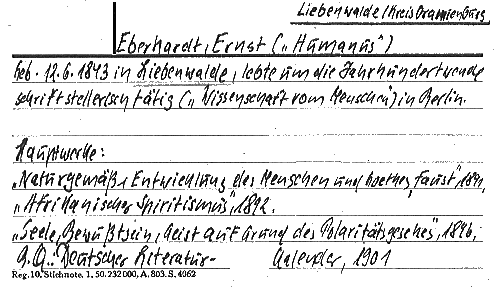 Liebenwalde/Kreis Oranienburg
Eberhardt, Ernst („Humanus")
Geb. 12.6.1843 in Liebenwalde, lebte um die Jahrhundertwende
schriftstellerisch tätig („Wissenschaft vom Menschen") in Berlin.
Hauptwerke:
„Naturgemäße Entwicklung des Menschen und Goethes „Faust" 1891,
„Afrikanischer Spiritismus", 1892.
„Seele, Bewußtsein, Geist auf Grund des Polaritätsgesetzes", 1896,
Deutscher Literatur- Kalender, 1901
Reg. 10. Stichnote. 1, 50. 232000, A. 803. S. 4062